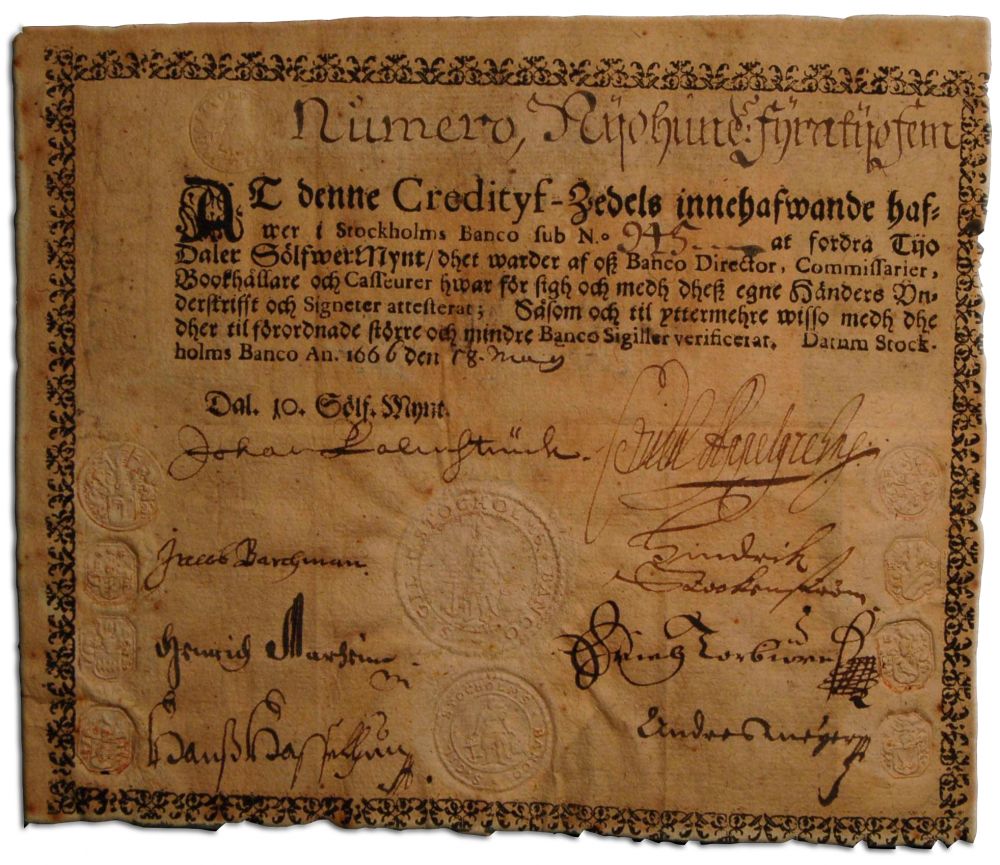 Numero, Nijohund: fyratijofem
AT denne Credityf-Zedels innehafwande haf-
wer i Stockholms Banco sub N.o 945 at fordra Tijo
Daler SölfwerMynt/ dhet warder af oß Banco Director, Commissarier,
Bookhållare och Casseurer hwar för sigh och medh dheß egne Händers Vn-
derskrifft och Signeter attesterat; Såsom och til yttermehre wisso medh dhe
dher til förordnade större och mindre Banco Sigiller verificerat. Datum Stock-
holms Banco An. 1666 den 18. May
Dal. 10. Sölf. Mynt.
Johan Palmstruck.
Jacob Barchman.
Hindrik
Henrich
Anders Meyer
STOCHOLMS BANCO